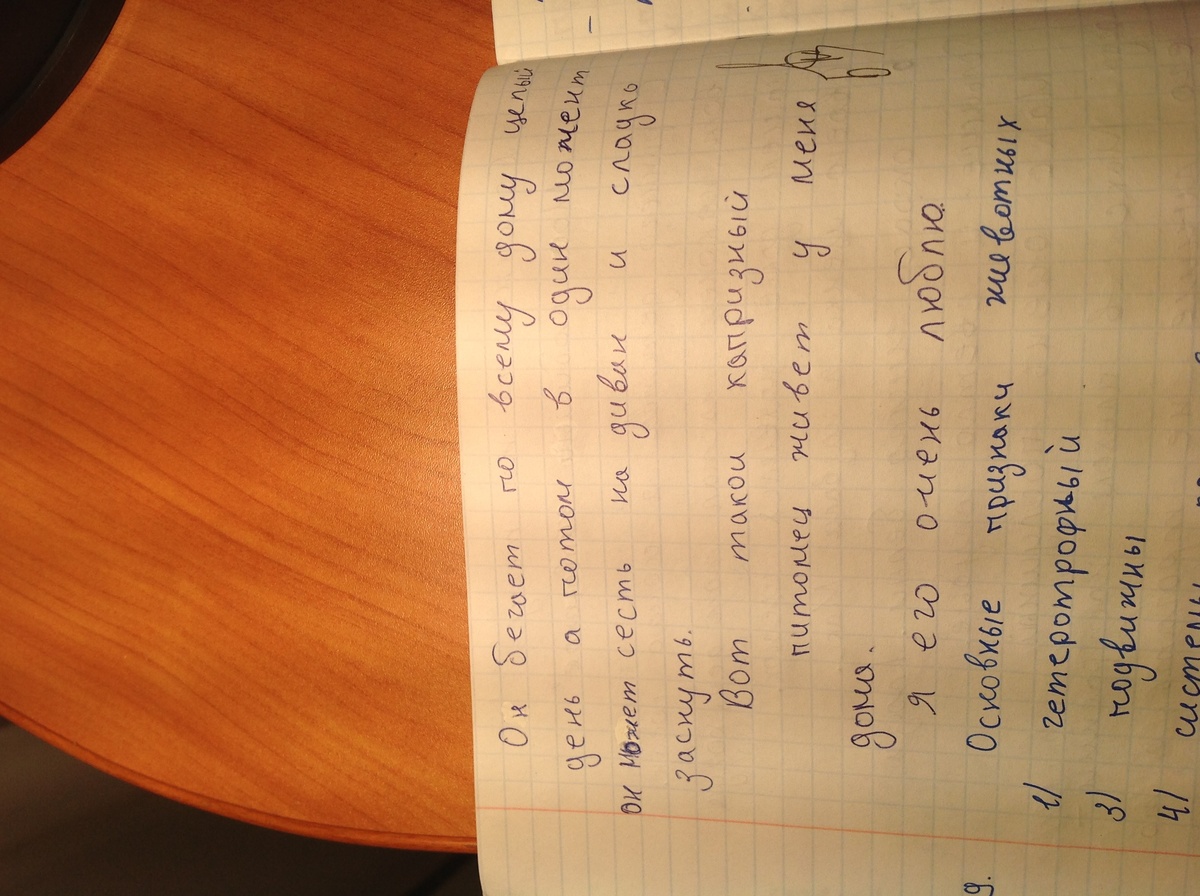 Он бегает по всему дому целый
день а потом в один можент
он может сесть на диван и сладко
заснуть.
Вот такой капризный
питомец живет у меня
дома.
Я его очень люблю.
9. Основные признаки животных
1) гетеротрофный
3) подвижны
4) системы